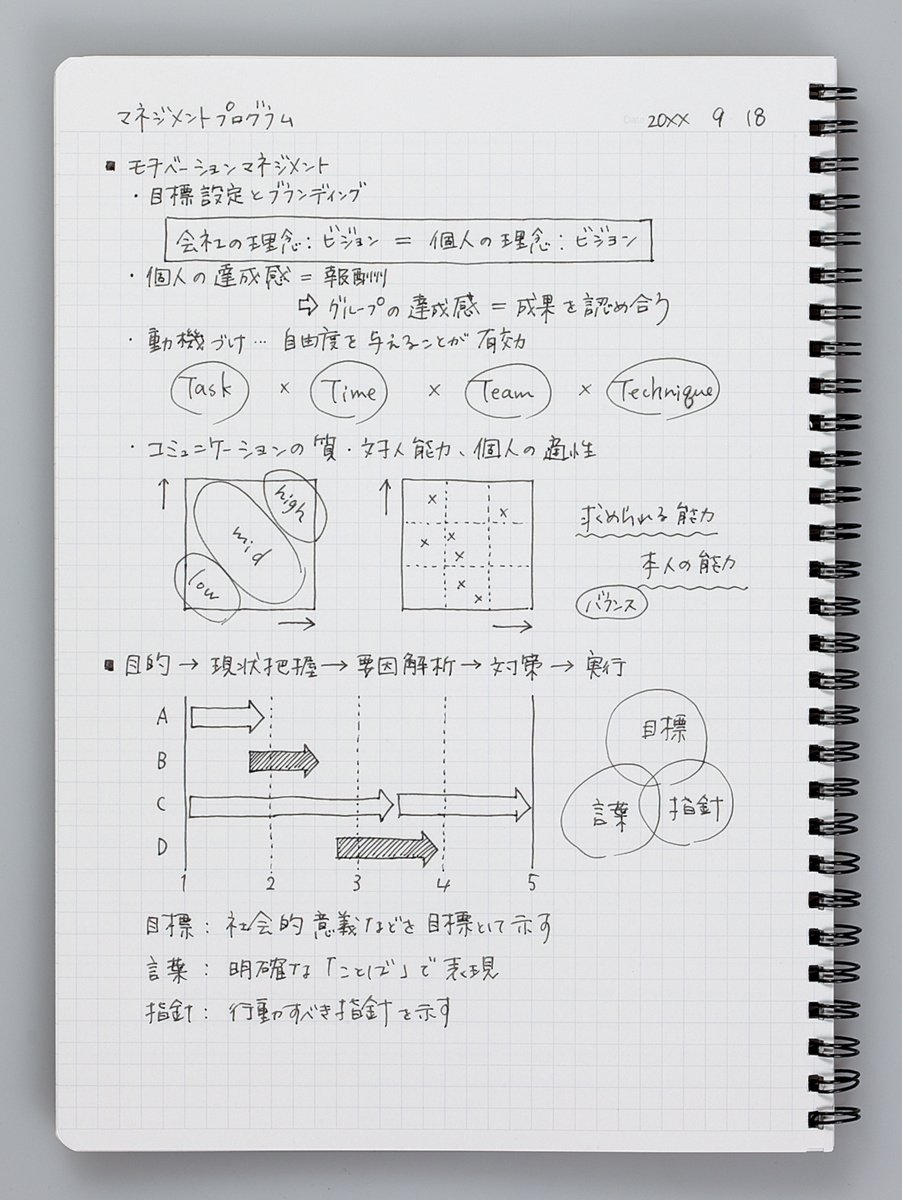 マネジメントプログラム 20XX 9 18
■ モチベーションマネジメント
・目標設定とブランディング
会社の理念：ビジョン ＝ 個人の理念：ビジョン
・個人の達成感 ＝ 報酬
⇨ グループの達成感 ＝ 成果を認め合う
・動機づけ… 自由度を与えることが有効
Task × Time × Team × Technique
・コミュニケーションの質・対人能力、個人の適性
↑ high mid low →
↑ × × × × × × × →
求められる能力
本人の能力
バランス
■ 目的 → 現状把握 → 要因解析 → 対策 → 実行
A
B
C
D
1 2 3 4 5
目標
言葉 指針
目標：社会的意義などを目標として示す
言葉：明確な「ことば」で表現
指針：行動すべき指針を示す